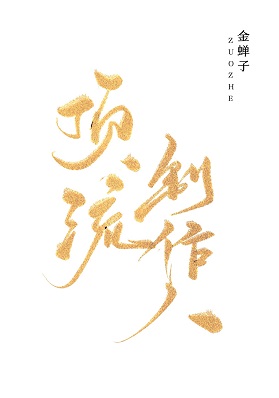 顶流
创作人
金蝉子
ZUOZHE